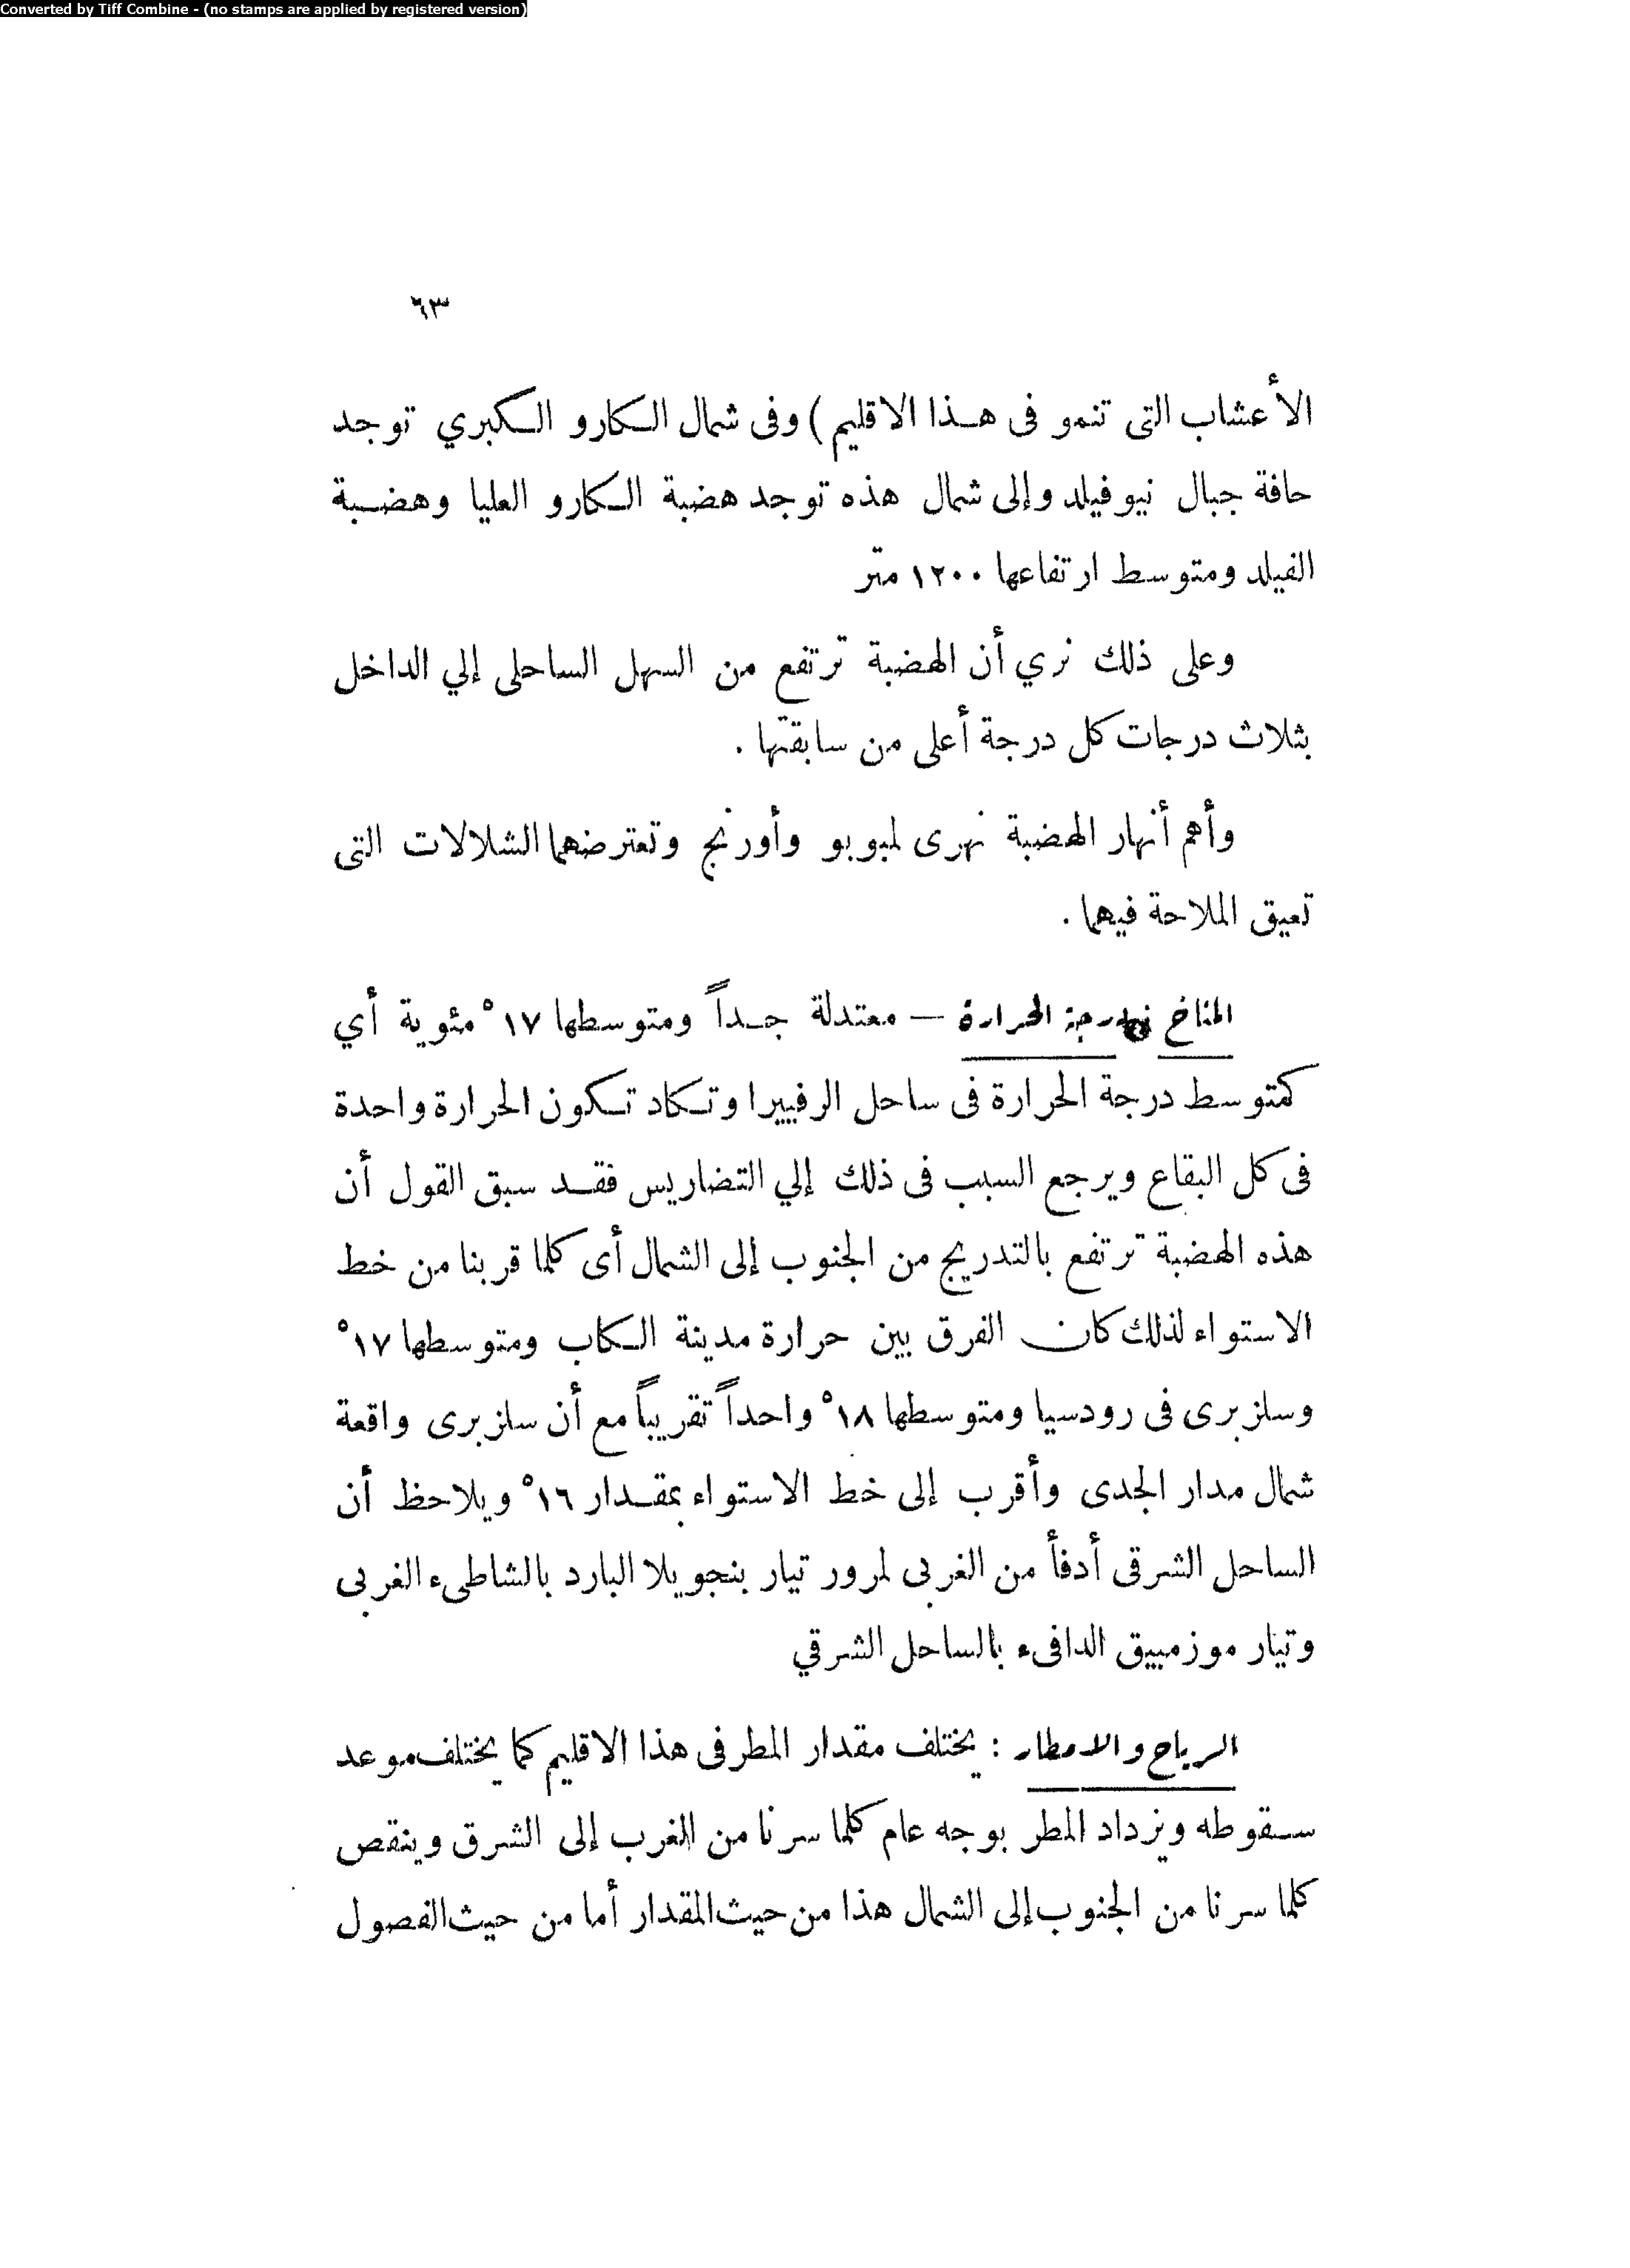 Converted by Tiff Combine - (no stamps are applied by registered version)
٦٣
الأعشاب التى تنمو فى هـذا الاقليم) وفى شمال الكارو الكبري توجد
حافة جبال نيوفيلد وإلى شمال هذه توجد هضبة الكارو العليا وهضبة
الفيلد ومتوسط ارتفاعها ١٢٠٠ متر
وعلى ذلك نري أن الهضبة ترتفع من السهل الساحلى إلي الداخل
بثلاث درجات كل درجة أعلى من سابقتها .
وأهم أنهار الهضبة نهرى لمبوبو وأورنج وتعترضهما الشلالات التى
تعيق الملاحة فيهما .
المناخ درجة الحرارة — معتدلة جـداً ومتوسطها ١٧° مئوية أي
كمتوسط درجة الحرارة فى ساحل الرفييرا وتكاد تكون الحرارة واحدة
فى كل البقاع ويرجع السبب فى ذلك إلي التضاريس فقـد سبق القول أن
هذه الهضبة ترتفع بالتدريج من الجنوب إلى الشمال أى كلما قربنا من خط
الاستواء لذلك كان الفرق بين حرارة مدينة الكاب ومتوسطها ١٧°
وسلزبرى فى رودسيا ومتوسطها ١٨° واحداً تقريباً مع أن سلزبرى واقعة
شمال مدار الجدى وأقرب إلى خط الاستواء بمقـدار ١٦° ويلاحظ أن
الساحل الشرقى أدفأ من الغربى لمرور تيار بنجويلا البارد بالشاطىء الغربى
وتيار موزمبيق الدافىء بالساحل الشرقي
الرياح والامطار : يختلف مقدار المطر فى هذا الاقليم كما يختلف موعد
سـقوطه ويزداد المطر بوجه عام كلما سرنا من الغرب إلى الشرق وينقص
كلما سرنا من الجنوب إلى الشمال هذا من حيث المقدار أما من حيث الفصول